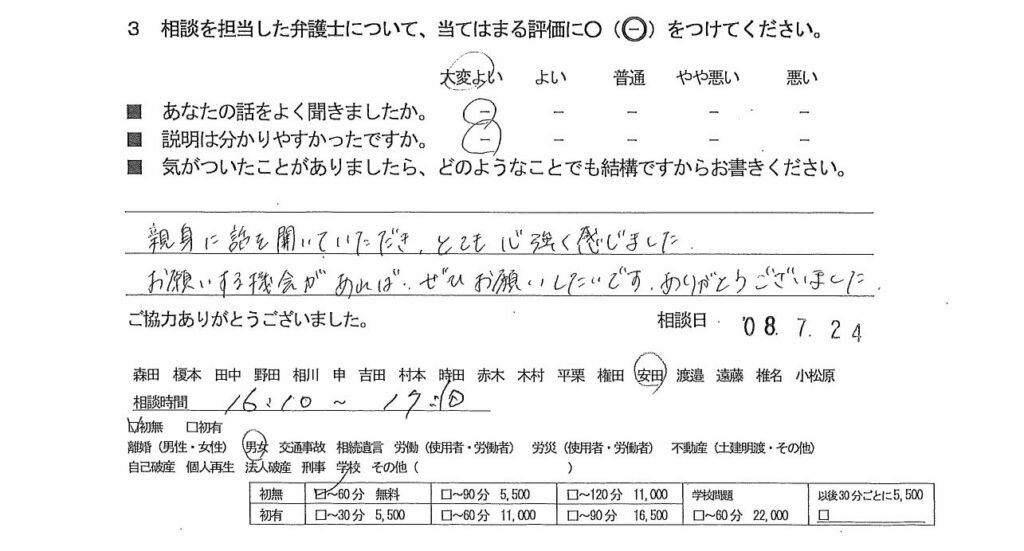 3 相談を担当した弁護士について、当てはまる評価に○(⊖)をつけてください。
大変よい よい 普通 やや悪い 悪い
■ あなたの話をよく聞きましたか。 － － － － －
■ 説明は分かりやすかったですか。 － － － － －
■ 気がついたことがありましたら、どのようなことでも結構ですからお書きください。
親身に話を聞いていただき、とても心強く感じました.
お願いする機会があれば、ぜひお願いしたいです.ありがとうございました.
ご協力ありがとうございました。 相談日 '08. 7. 24
森田 榎本 田中 野田 相川 申 吉田 村本 時田 赤木 木村 平栗 権田 安田 渡邉 遠藤 椎名 小松原
相談時間 16:10 ～ 17:10
☑初無 □初有
離婚(男性・女性) 男女 交通事故 相続遺言 労働(使用者・労働者) 労災(使用者・労働者) 不動産(土建明渡・その他)
自己破産 個人再生 法人破産 刑事 学校 その他( )
初無 ☑～60分 無料 □～90分 5,500 □～120分 11,000 学校問題 以後30分ごとに5,500
初有 □～30分 5,500 □～60分 11,000 □～90分 16,500 □～60分 22,000 □